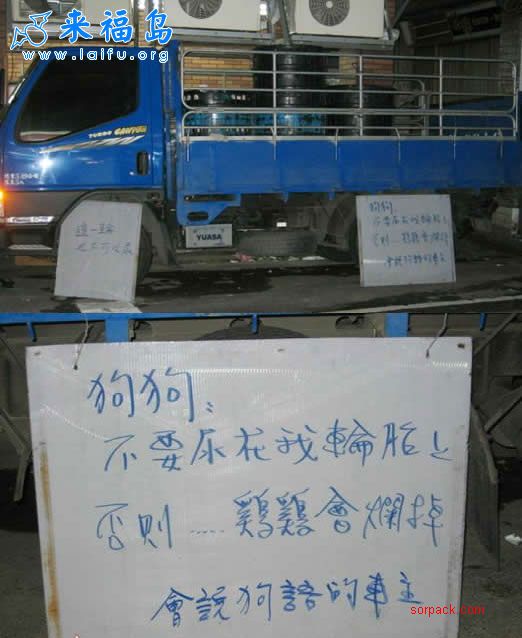 来福岛
www.laifu.org
TURBO CANTER
YUASA
這一輪
也不可以尿
狗狗:
不要尿在我輪胎上
否則......鷄鷄會爛掉
會說狗語的車主
狗狗:
不要尿在我輪胎上
否則......鷄鷄會爛掉
會說狗語的車主
sorpack.com